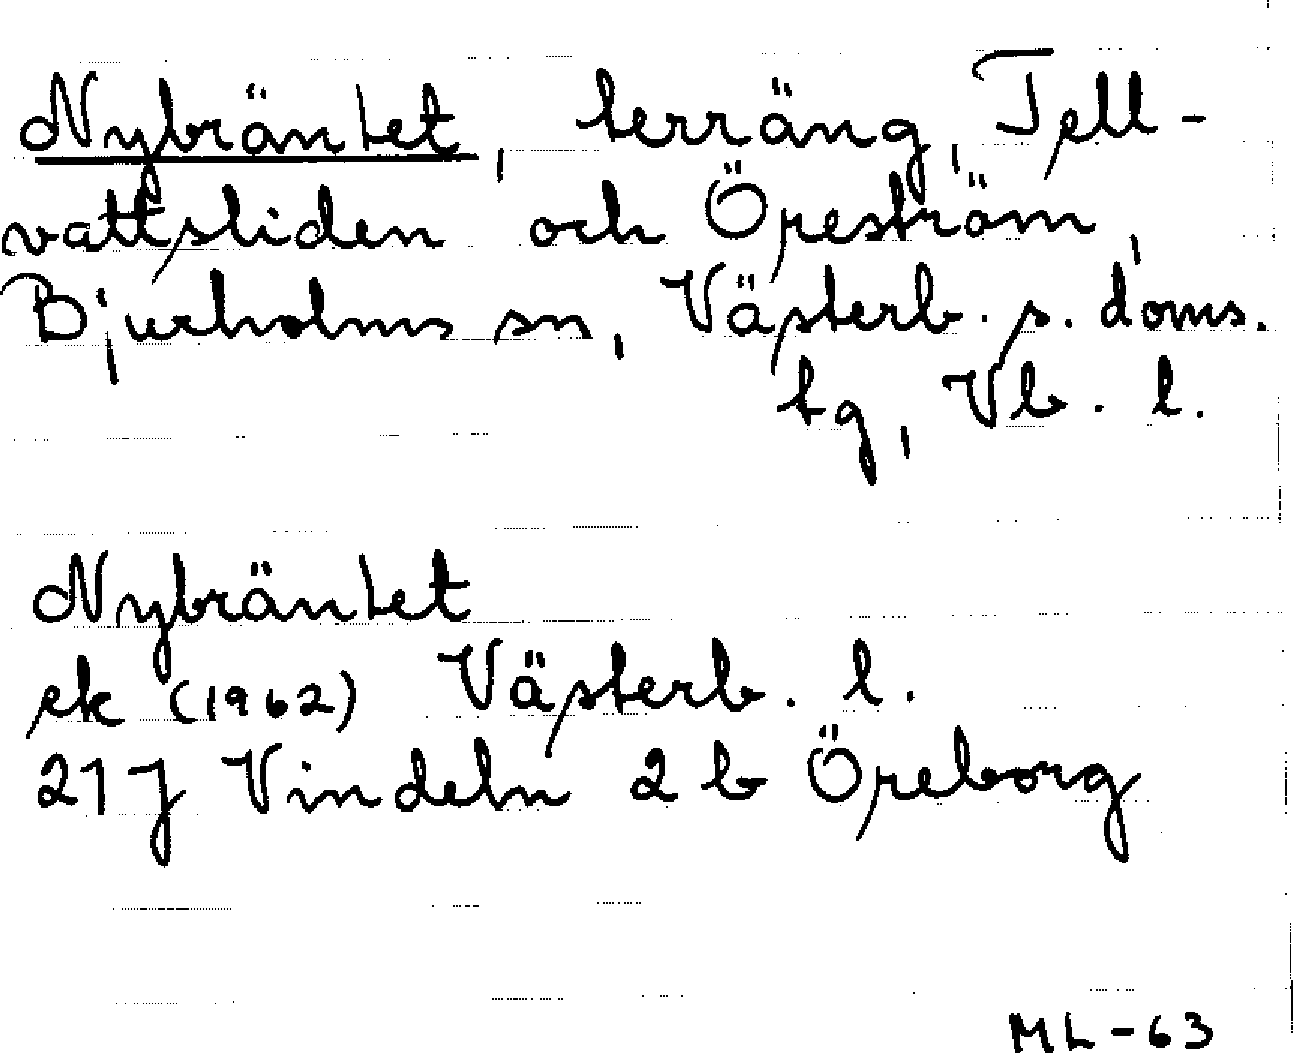 Nybräntet, terräng, Tell-
vattsliden och Öreström,
Bjurholms sn, Västerb. s. doms.
tg, Vb. l.
Nybräntet
ek (1962) Västerb. l.
21J Vindeln 2 b Öreborg
ML-63